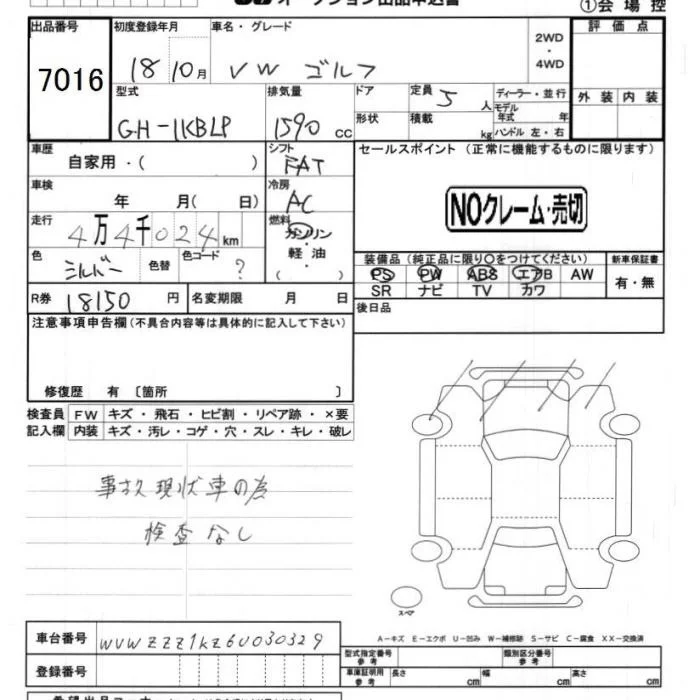 オークション出品申込書
①会場控
出品番号 初度登録年月 車名・グレード 2WD 評価点
7016 18 10月 VW ゴルフ ・
4WD
型式 排気量 ドア 定員 5 人 ディーラー・並行 外装 内装
モデル年式 年
GH-1KBLP 1590 cc 形状 積載 kg ハンドル 左・右
車歴 自家用・( ) シフト FAT セールスポイント (正常に機能するものに限ります)
車検 年 月( 日) 冷房 AC
NOクレーム・売切
走行 4万4千024km 燃料 ガソリン
軽油
( )
色 シルバー 色替 色コード ? 装備品(純正品に限り○をつけてください) 新車保証書
PS PW ABS エアB AW 有・無
SR ナビ TV カワ
R券 18150 円 名変期限 月 日
後日品
注意事項申告欄(不具合内容等は具体的に記入して下さい)
修復歴 有 〔箇所 〕
検査員 FW キズ・飛石・ヒビ割・リペア跡・×要
記入欄 内装 キズ・汚レ・コゲ・穴・スレ・キレ・破レ
事故現状車の為
検査なし
スペア
A-キズ E-エクボ U-凹み W-補修跡 S-サビ C-腐食 XX-交換済
車台番号 WVWZZZ1KZ6U030329
型式指定番号 参考 類別区分番号 参考
登録番号 車庫証明用 参考 長さ cm 幅 cm 高さ cm